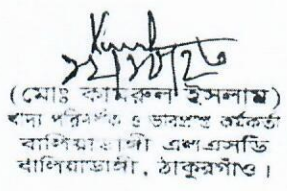 (মোঃ কামরুল ইসলাম)
খাদ্য পরিদর্শক ও ভারপ্রাপ্ত কর্মকর্তা
বালিয়াডাঙ্গী এলএসডি
বালিয়াডাঙ্গী, ঠাকুরগাঁও।